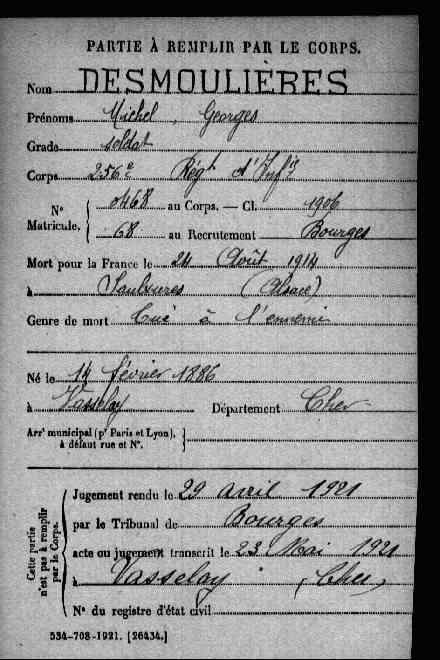 PARTIE À REMPLIR PAR LE CORPS.
Nom DESMOULIÈRES
Prénoms Michel, Georges
Grade soldat
Corps 256e Régt d'Infie
No Matricule. 0468 au Corps. — Cl. 1906
68 au Recrutement Bourges
Mort pour la France le 24 Août 1914
à Saulxures (Alsace)
Genre de mort Tué à l'ennemi
Né le 14 février 1886
à Vasselay Département Cher
Arrt municipal (pr Paris et Lyon),
à défaut rue et No.
Cette partie
n'est pas à remplir
par le Corps.
Jugement rendu le 29 avril 1921
par le Tribunal de Bourges
acte ou jugement transcrit le 23 Mai 1921
à Vasselay (Cher)
No du registre d'état civil
534-708-1921. [26434.]